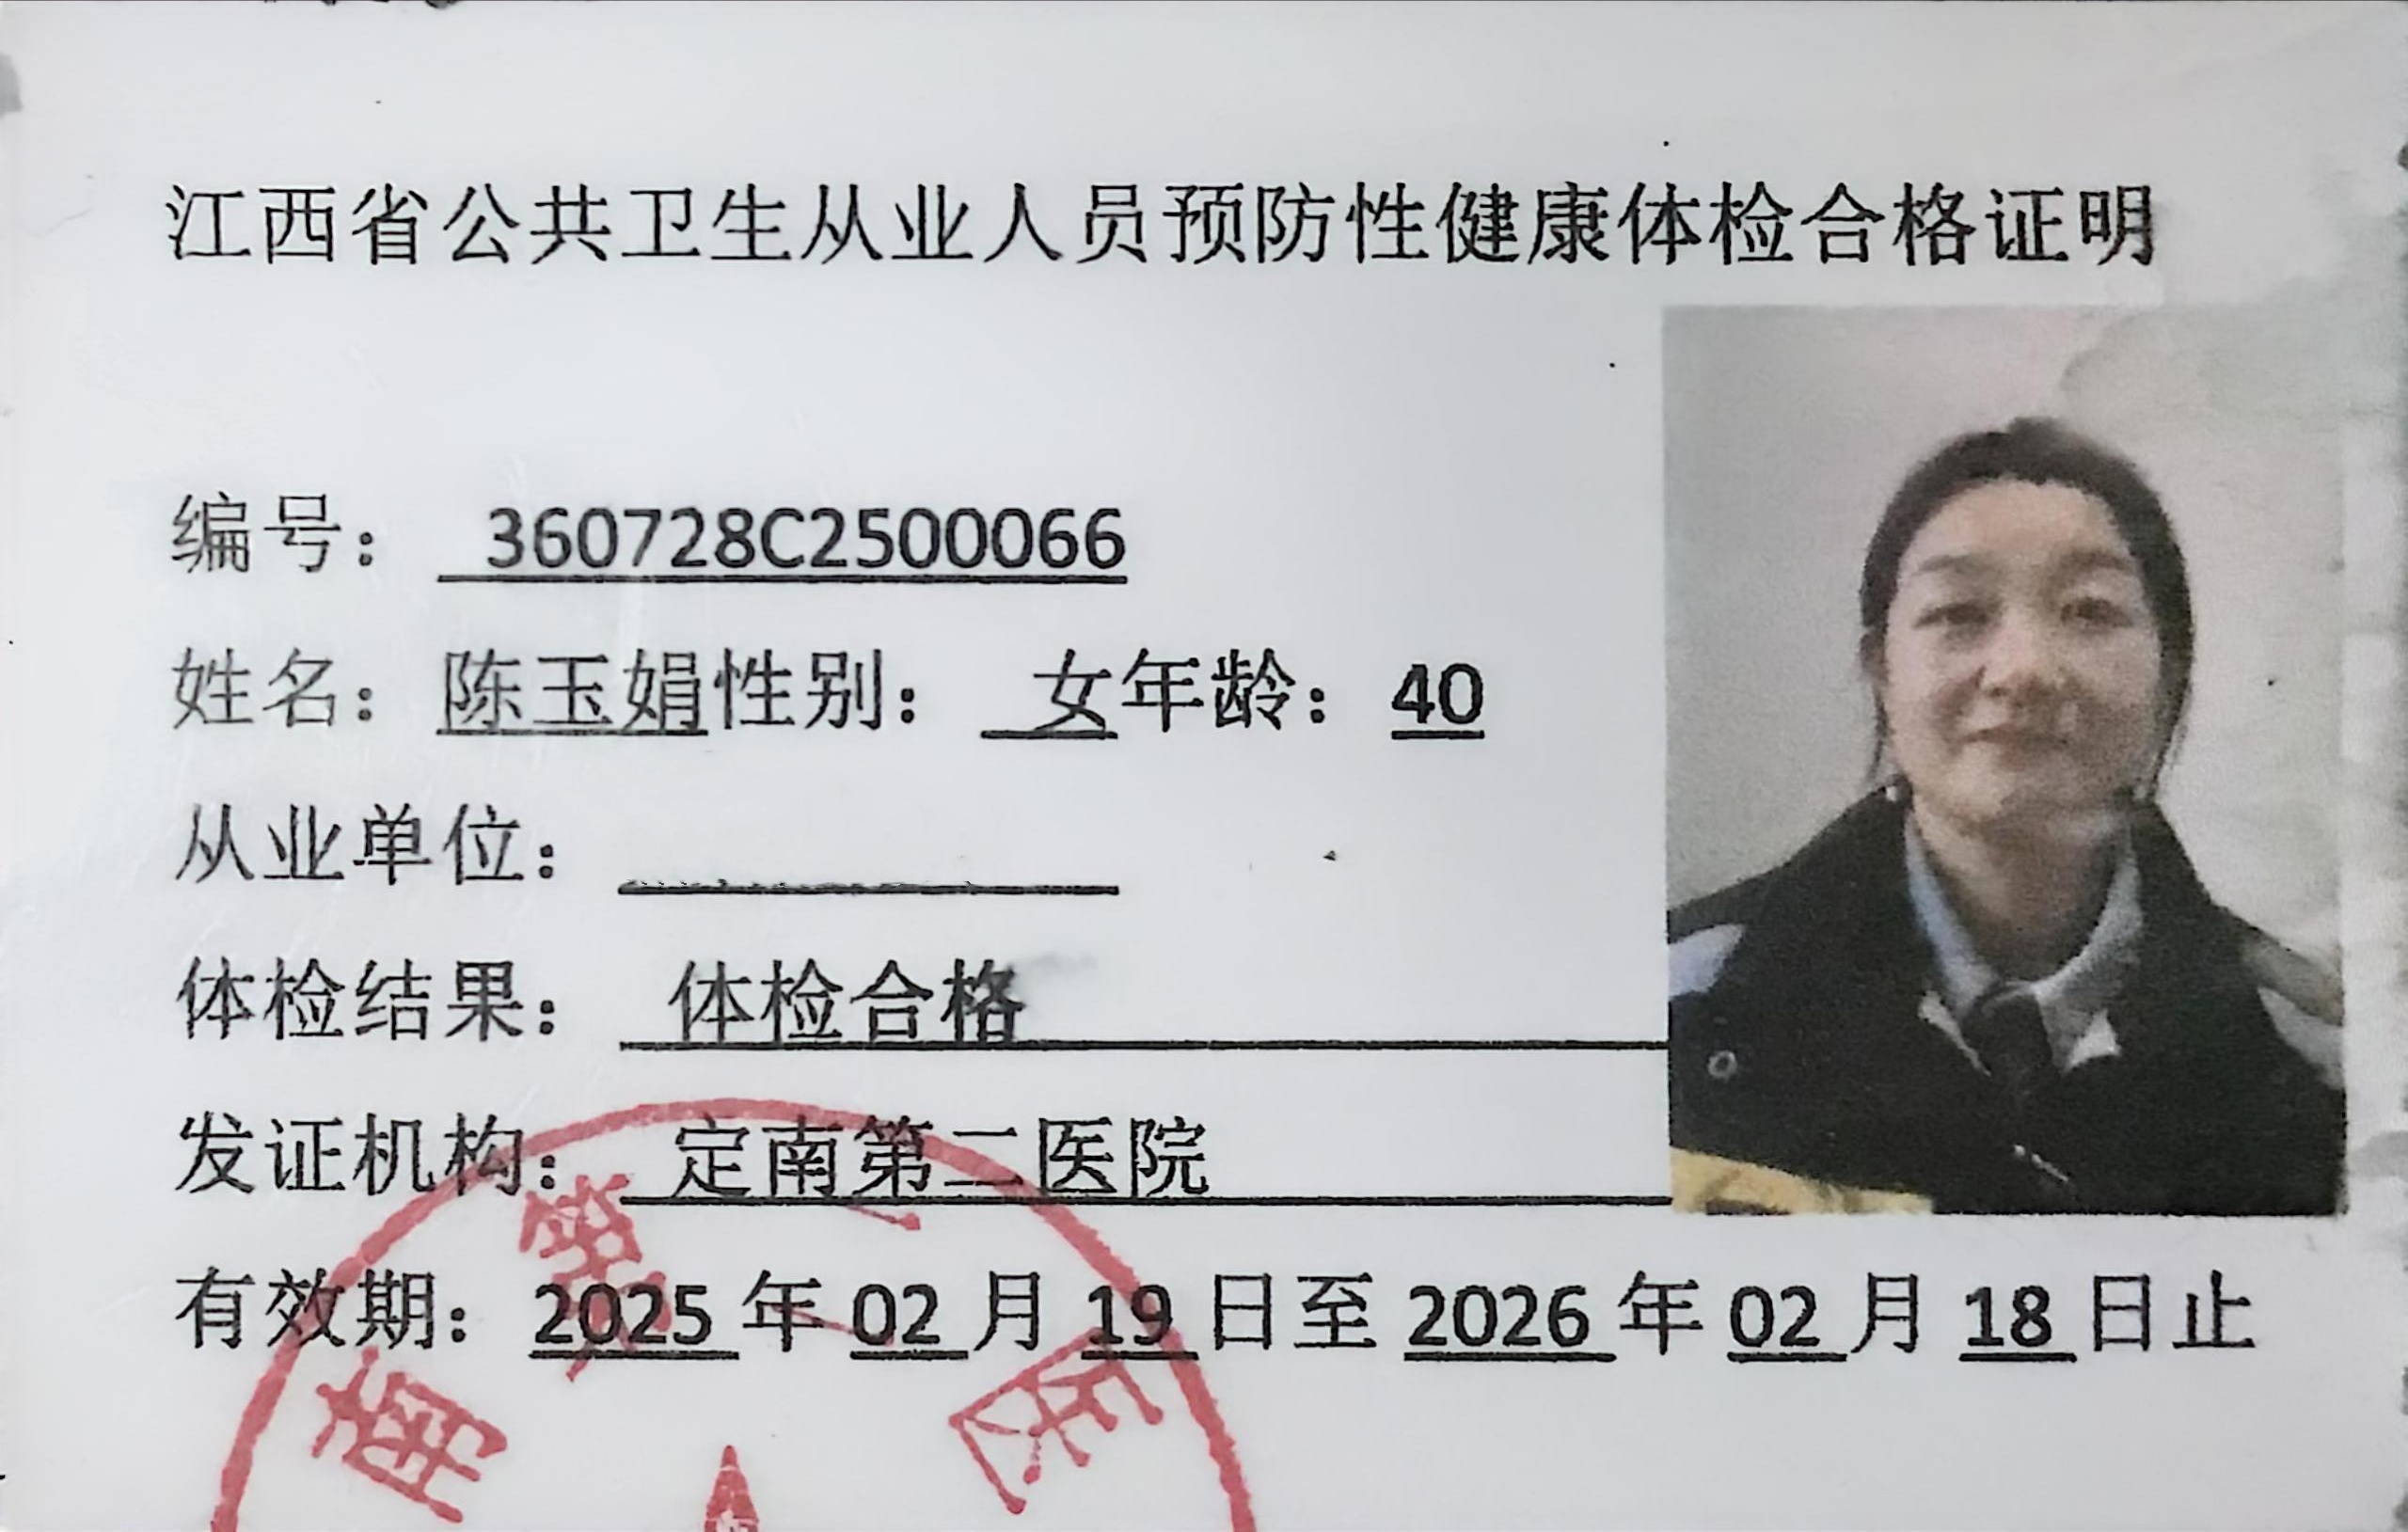 江西省公共卫生从业人员预防性健康体检合格证明
编号： 360728C2500066
姓名：陈玉娟性别： 女年龄：40
从业单位：
体检结果： 体检合格
发证机构： 定南第二医院
有效期：2025年02月19日至2026年02月18日止
南第二医